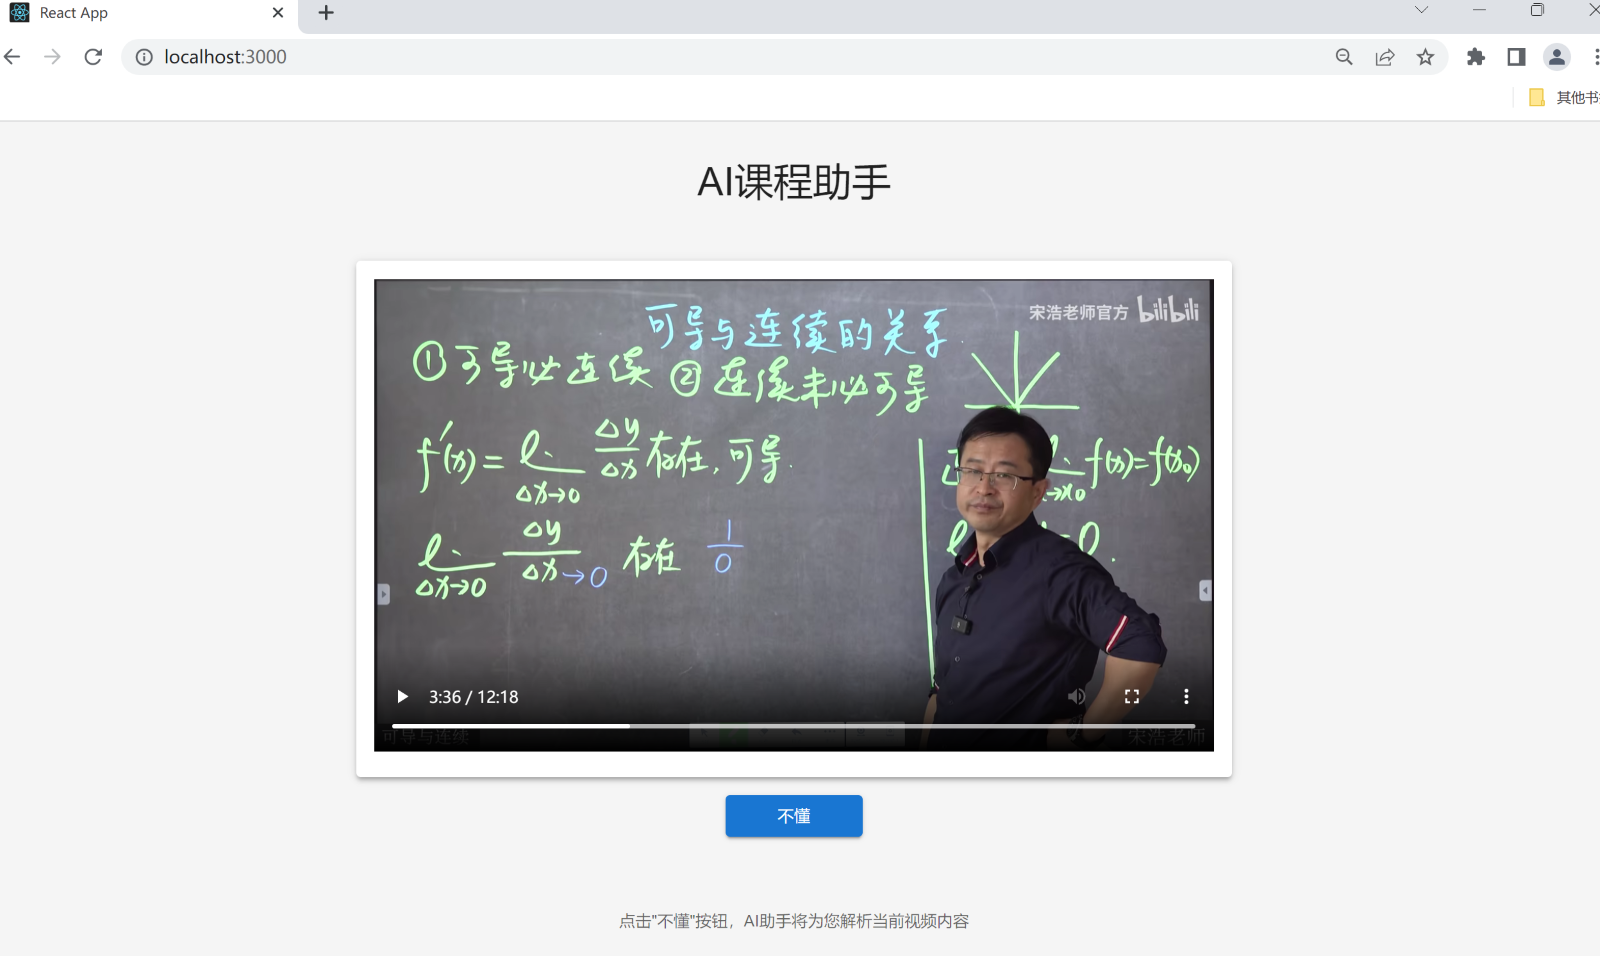 React App
localhost:3000
其他书
AI课程助手
宋浩老师官方 bilibili
可导与连续的关系.
①可导必连续 ②连续未必可导
f'(x)=lim Δx→0 Δy/Δx 存在,可导.
f(x)=f(x₀)
→x₀
lim Δx→0 Δy/Δx→0 存在 1/0
=0.
3:36 / 12:18
可导与连续
宋浩老师
不懂
点击"不懂"按钮，AI助手将为您解析当前视频内容